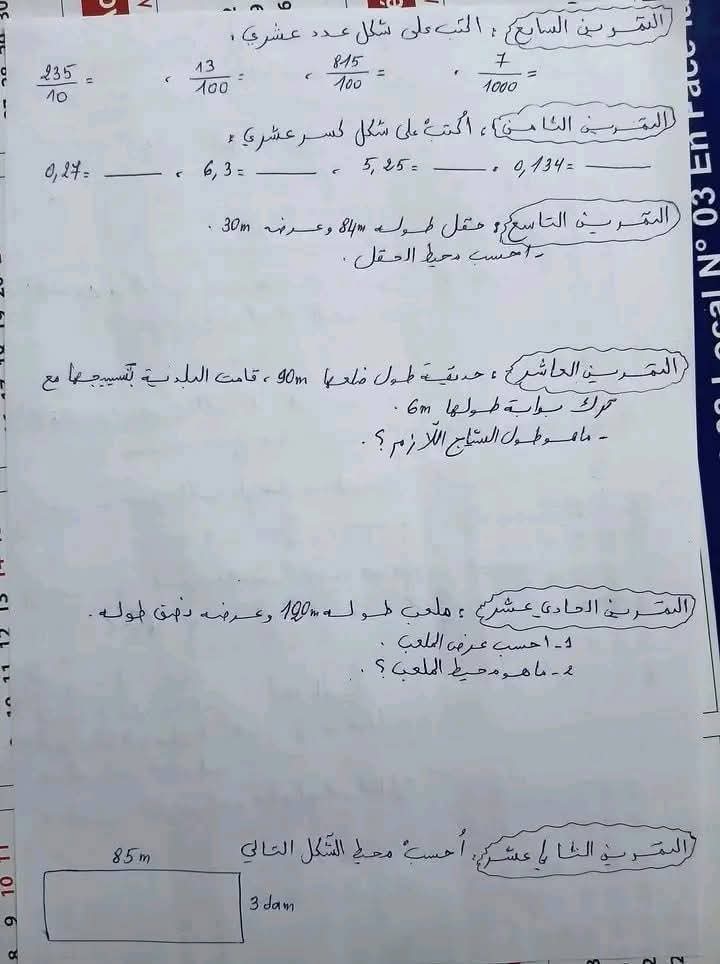 التمرين السابع: اكتب على شكل عدد عشري:
235/10 = ، 13/100 = ، 815/100 = ، 7/1000 =
التمرين الثامن: أكتبْ على شكل كسر عشري:
0,27 = ____ ، 6,3 = ____ ، 5,25 = ____ ، 0,134 = ____
التمرين التاسع: حقل طوله 84m وعرضه 30m .
- احسب محيط الحقل .
التمرين العاشر: حديقة طول ضلعها 90m، قامت البلدية بتسييجها مع
ترك بوابة طولها 6m .
- ما هو طول السّياج اللّازم ؟ .
التمرين الحادي عشر: ملعب طوله 120m وعرضه نصف طوله .
1- احسب عرض الملعب .
2- ما هو محيط الملعب ؟ .
التمرين الثاني عشر: أُحسبْ محيط الشّكل التالي
85m
3 dam
Local N° 03 En Face